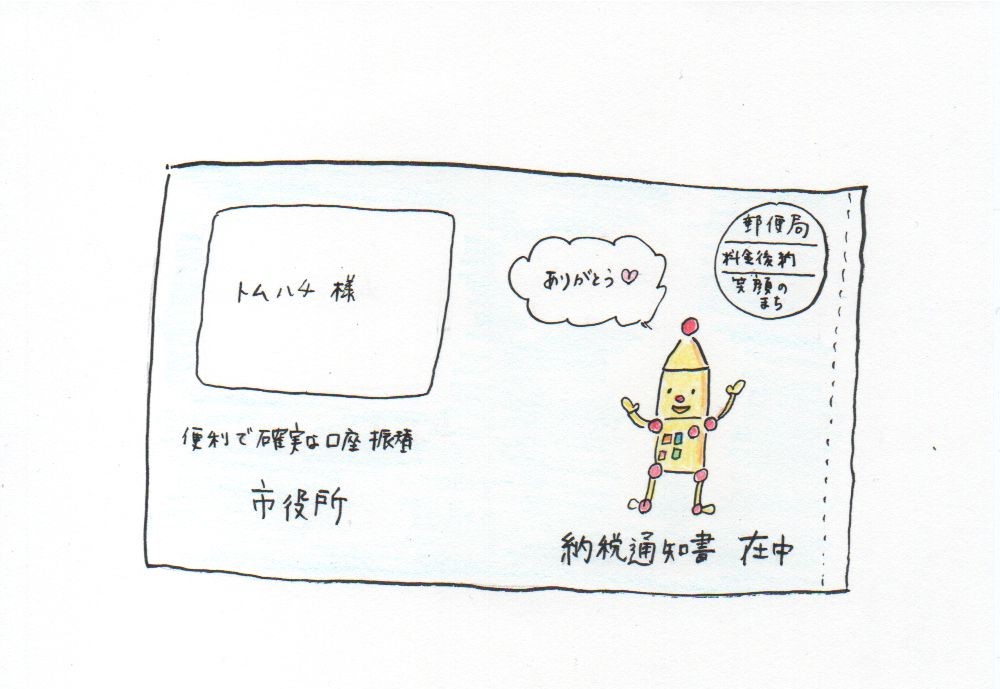 トムハチ 様
便利で確実な口座振替
市役所
ありがとう♡
郵便局
料金後納
笑顔の
まち
納税通知書 在中